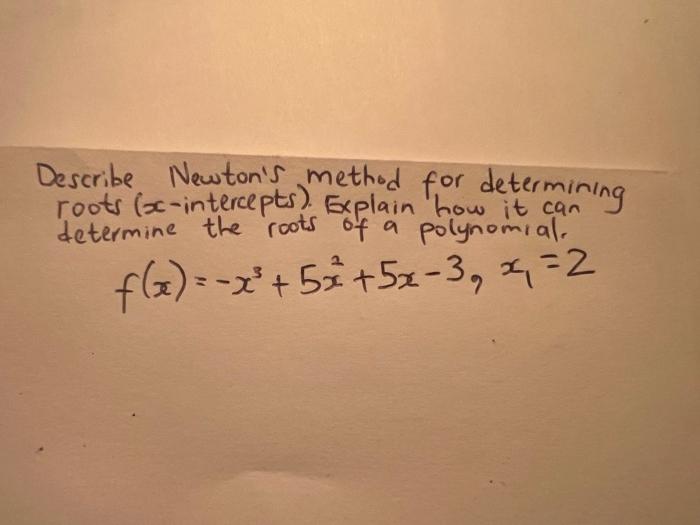 Describe Newton's method for determining
roots (x-intercepts). Explain how it can
determine the roots of a polynomial.
f(x) = -x³ + 5x² + 5x - 3, x₁ = 2